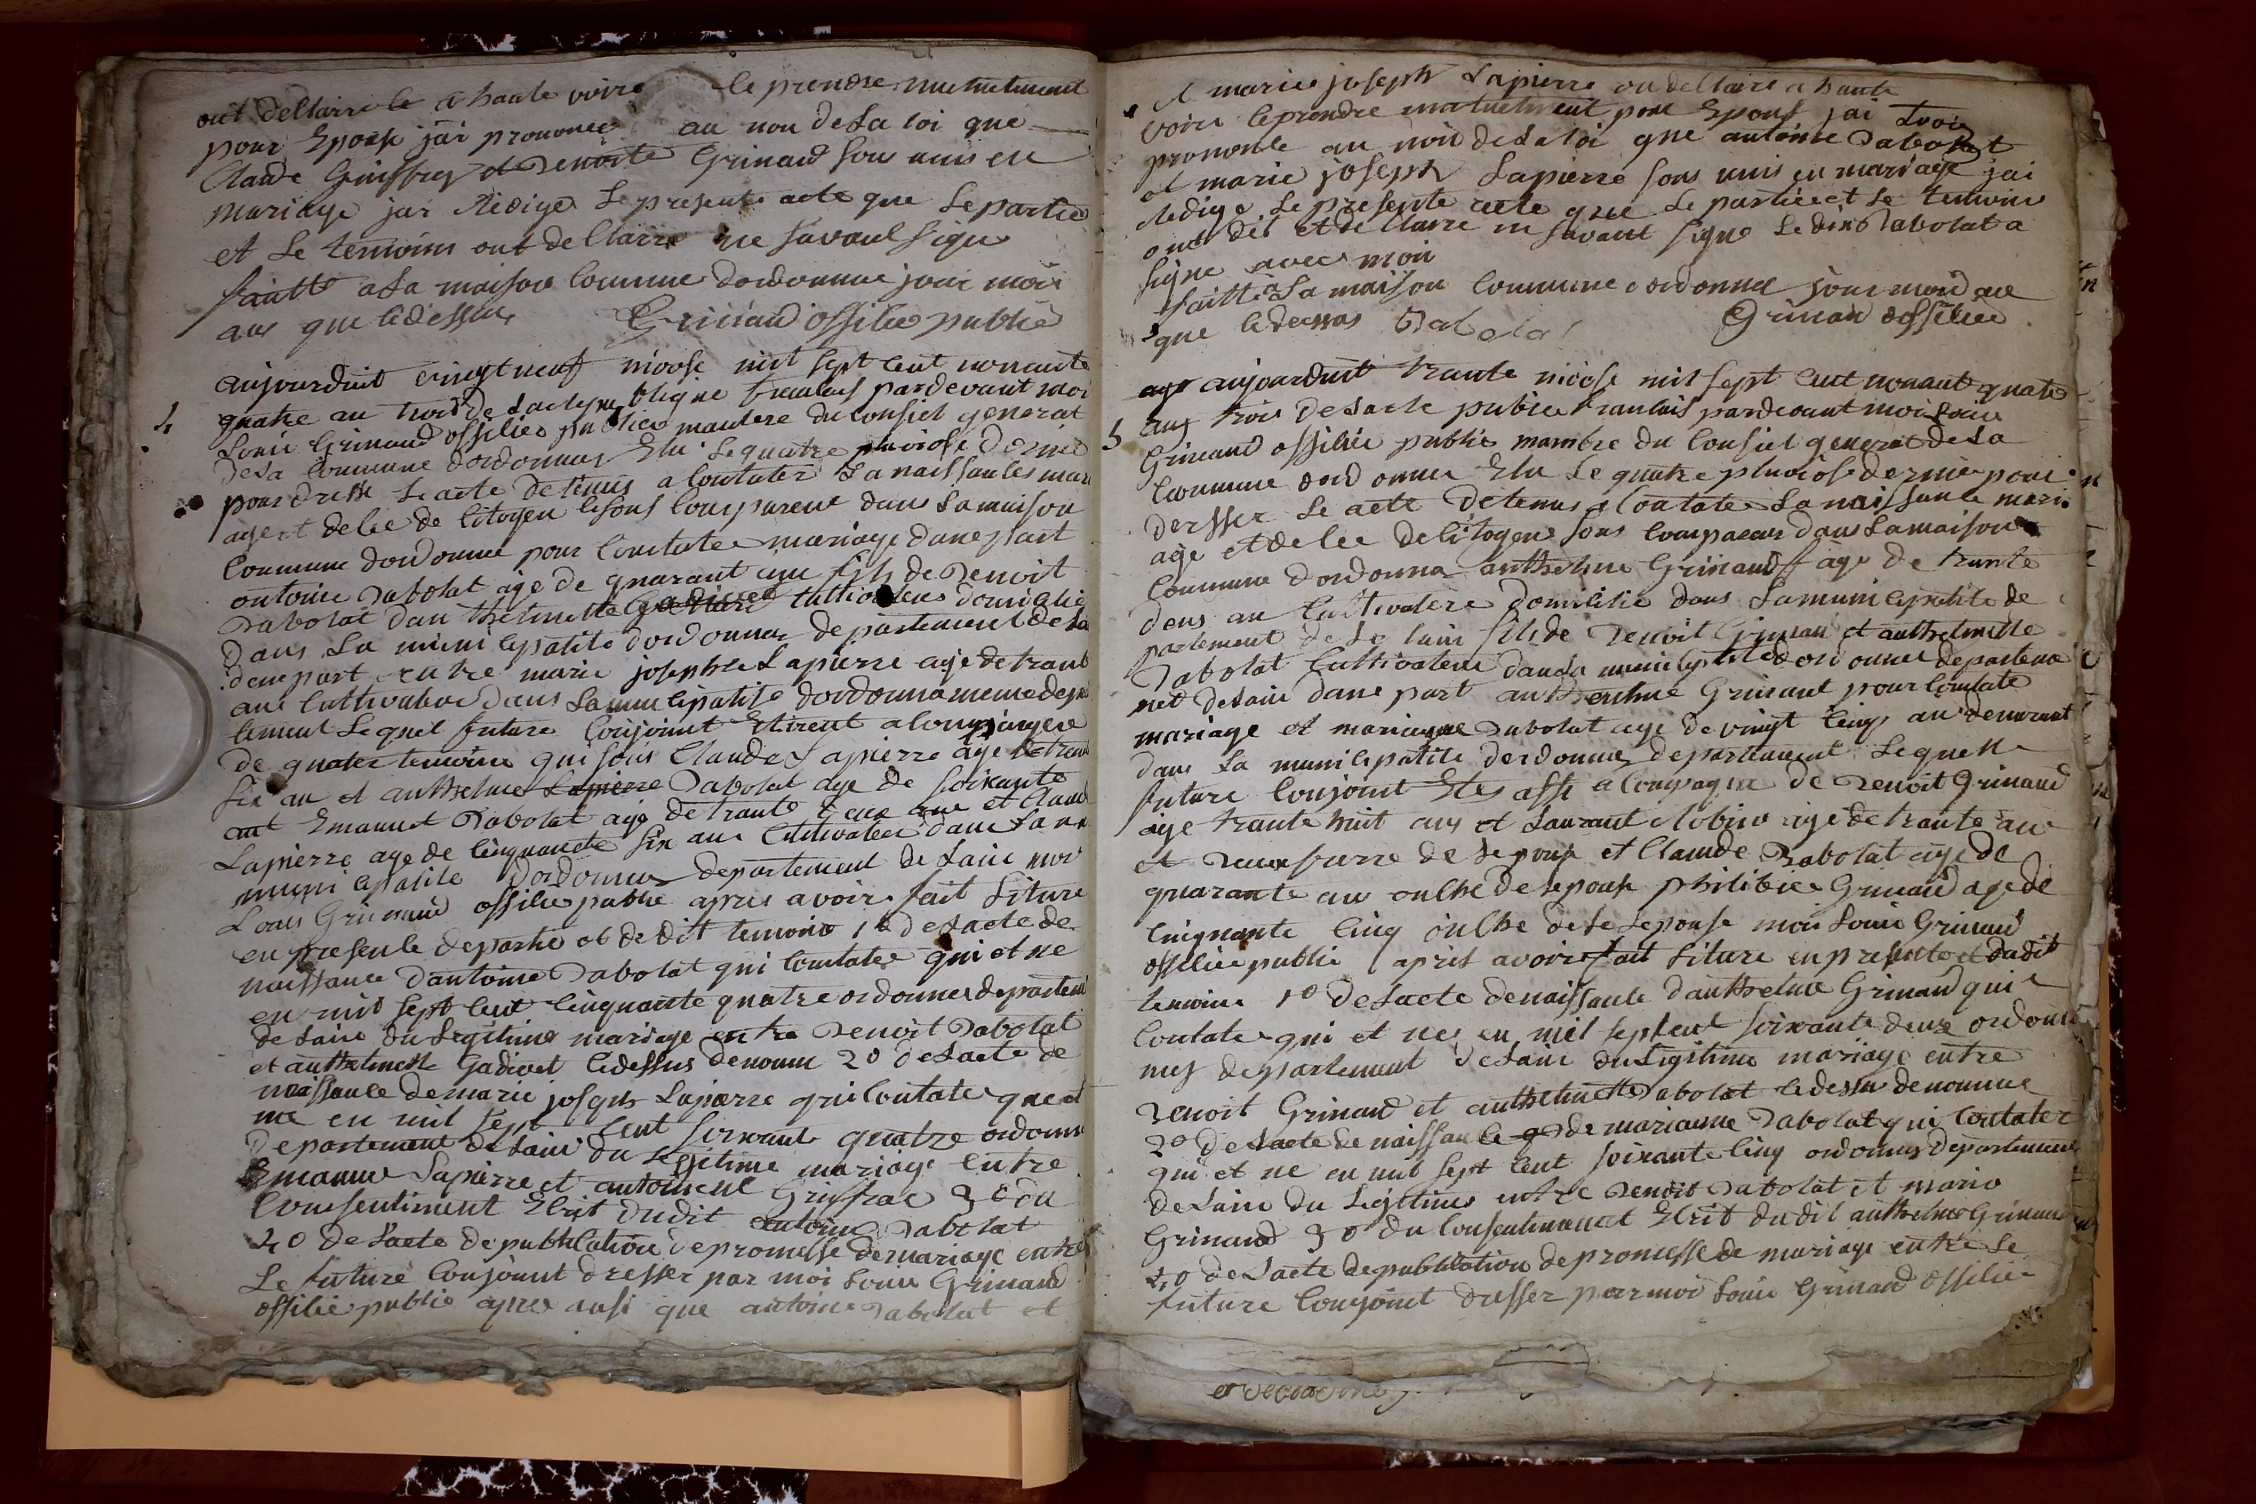 ont dellairre le a haute voire le prendre mutuelement
pour Epouse jai prononcee au non de La loi que
Claude Guiffrey et Benoite Grinand sons unis en
mariage jai Redige Le present acte que Le partie
et Le temoins ont dellairre ne savant signe
faitte a La maison Commune dordonnue jour mois
ans que ledessus Grinand offilier public
aujourduit vingt neuf nivose mil sept cent nonante
4 quatre an trois de La Republique francais pardevant moi
Louis Grinand offilier public manbre du Consiel general
de La Commune dordonnas Elu Le quatre pluviose dernie
pour dresse Le acte detinus a Contater La naissantes mari
age et delee de litoyen lesons Comparent dans La maison
Commune dordonna pour Constater mariage dune part
antoine Dabolat age de quarant ans fils de Benoit
Dabolat dan thelmette Gadivet Cultivateur domicilie
dans La munilepalite dordonnas departement de La
dune part entre marie josephte Lapierre age de trant
ans Cultivateur dans La munilepalite dordonna meme depar
tement Lequel future Conjoint Etirent a Compagner
de quater temoins qui sons Claude Lapierre age de trant
six an et anthelme Lapierre Dabolat age de soixante
ant Emanuel Dabolat age de trante deux ans et Claude
Lapierre age de cinquante six ans Cultivateur dans La
munilepalite Dordonnas departement de Laine moi
Louis Grinand offilier public apres avoir fait Liture
en presente de partie et de dit temoins 1° de Lacte de
naissance dantoine Dabolat qui Contater qui et ne
en mil sept cent cinquante quatre ordonnas departem
de Laine du Legitime mariage entre Benoit Dabolat
et anthelmette Gadivet ledessus denonme 2° de Lacte de
naissance de marie joseph Lapierre qui Contater que et
ne en mil sept cent soixante quatre ordonna
Departement de Laine du Legitime mariage entre
Emanuel Lapierre et antoinette Griffrae 3° du
Consentiment Ecrit dudit antoine Dabolat
4° de Lacte de publication de promesse de mariage entre
Le future Conjoint dresser par moi Louis Grinand
offilie public apres ausi que antoine Dabolat et
et marie joseph Lapierre on dellaire a haute
voire le prendre mutuelment pour Epouse jai
prononcee au non de La loi que antoine Dabolat
et marie joseph Lapierre sons unis en mariage jai
Redige Le presente acte que Le partie et Le temoins
ont dit et dellaire ne savant signe Le dit Dabolat a
signe avec moi
faitte a La maison Commune dordonna jour mois an
que ledessus Dabolat Grinand offilier
aujourduit trante nivose mil sept cent nonant quatre
5 ans trois de Lacte public francais pardevant moi Louis
Grinand offilie public mambre du Consiel general de La
Commune dordonnas Elu Le quatre pluviose dernie pour
dersser Le acte detenus a Contater La naissante mari
age et delee de litoyen sons Comparens dans La maison
Commune dordonna anthelme Grinand age de trante
deus an Cultivatere domicilie dans La munilepalite de
partement de Laine fils de Benoit Grinand et anthelmette
Dabolat Cultivateur dans La munilepalite dordonnas departeme
net de Laine dune part anthelme Grinant pour Contate
mariage et marianne Dabolat age de vingt cinq an demerant
dans La munilepalite dordonnas departement Lequelle
future Conjoint Etes asse a Compagne de Benoit Grinand
age trante huit ans et Laurant Robino age de trante ans
et beau frerre de Lepouse et Claude Dabolat age de
quarante ans onlhe de Lepouse philibier Grinand age de
cinquante cinq onlhe de Lepouse moi Louis Grinand
offilier public apres avoir fait Liture en presente et dudit
temoins 1° de Lacte de naissante danthelme Grinand qui
Contater qui et ne en mil sept cent soixante deux ordonn
nas departement de Laine du Legitime mariage entre
Benoit Grinand et anthelmette Dabolat ledessu denonme
2° de Lacte de naissante de marianne Dabolat qui Contater
qui et ne en mil sept cent soixante cinq ordonnas departement
de Laine du Legitime entre Benoit Dabolat et marie
Grinand 3° du Consentiment Ecrit dudit anthelme Grinand
4° de Lacte de publication de promesse de mariage entre Le
future Conjoint dresser par moi Louis Grinand offilie